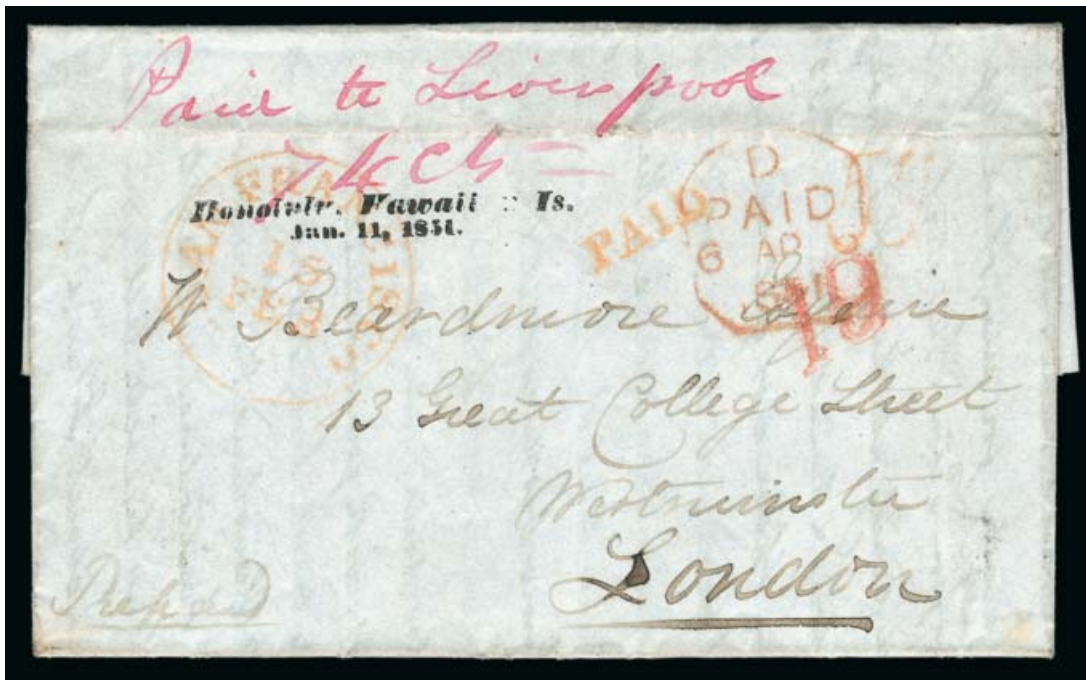 Paid to Liverpool
74 cts
Honolulu. Hawaii Is.
Jan. 11, 1851.
SAN FRANCISCO
15
FEB
PAID
D
PAID
6 AP
1851
19
W Beardmore Esquire
13 Great College Street
Westminster
London
Prepaid